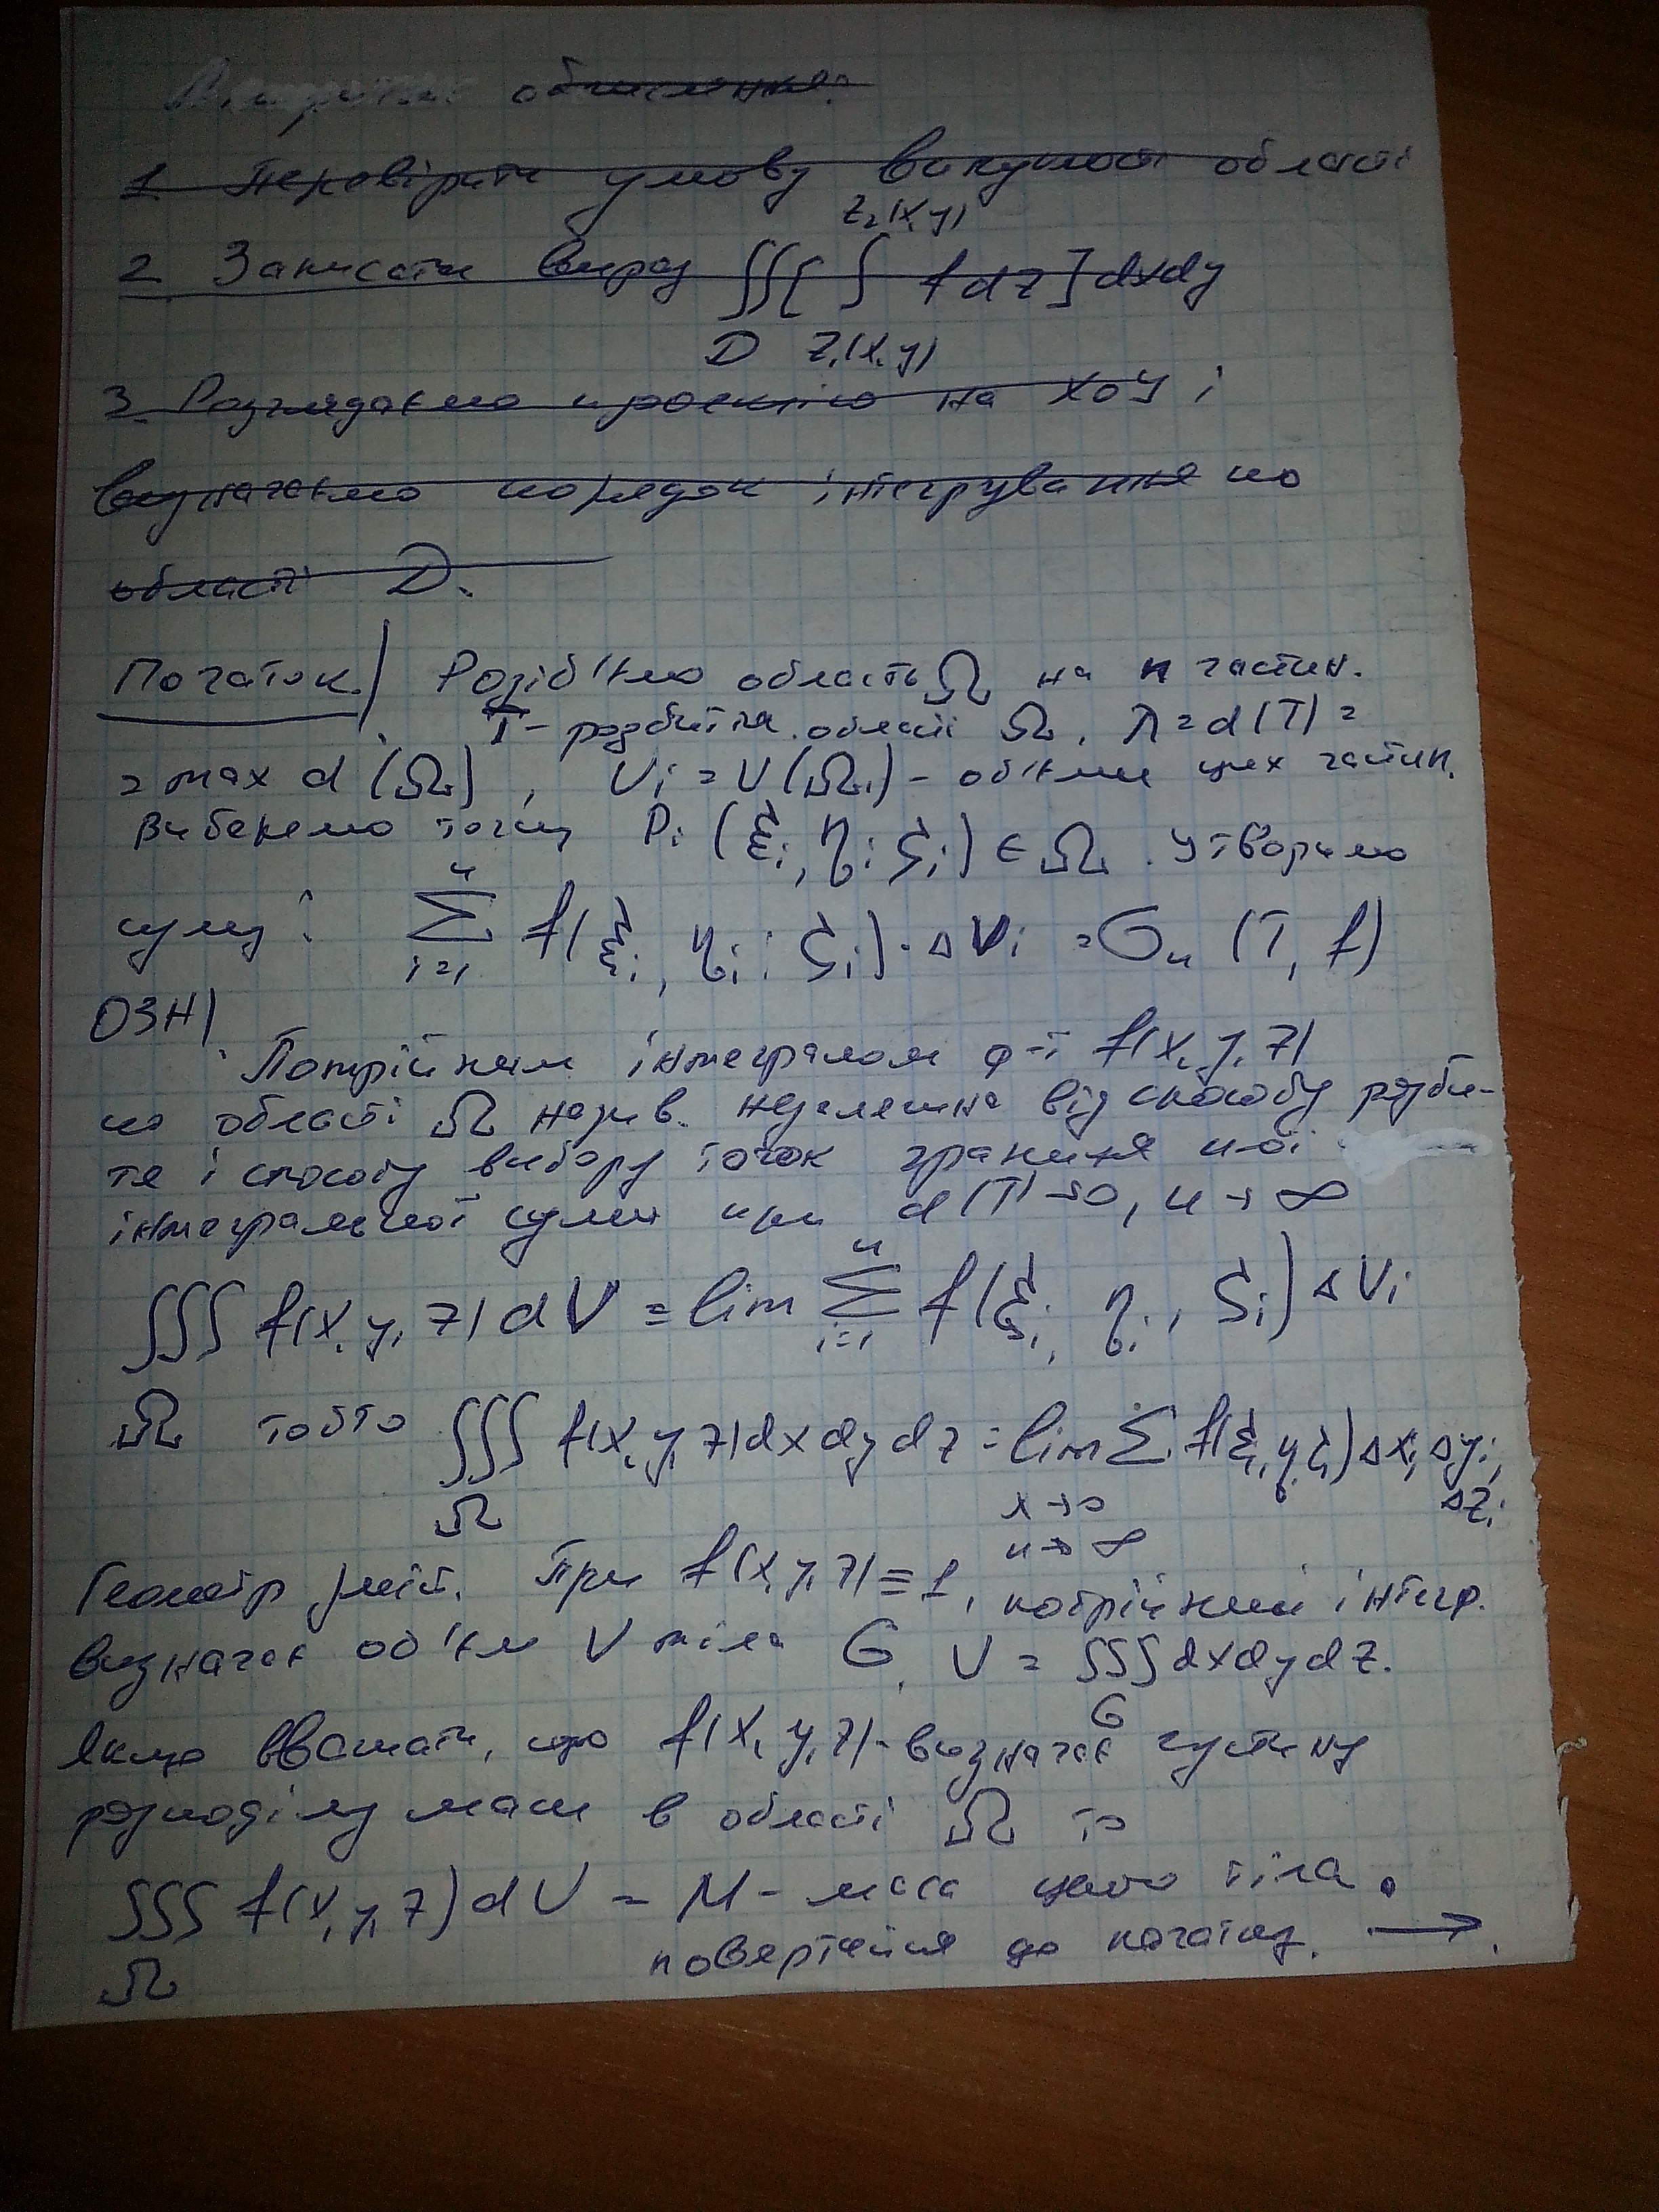 обчислення:
1. Перевірити умову випуклості області
2. Записати вираз ∬[ ∫ f dz ] dxdy
z₂(x,y)
D z₁(x,y)
3. Розглядаємо проекцію на XOY і
визначаємо порядок інтегрування по
області D.
Початок.) Розіб'ємо область Ω на n частин.
T - розбиття області Ω, λ = d(T) =
= max d(Ωᵢ), Vᵢ = V(Ωᵢ) - об'єми цих частин.
Виберемо точку Pᵢ(ξᵢ, ηᵢ; ζᵢ) ∈ Ω. Утворимо
суму: ∑ᵢ₌₁ⁿ f(ξᵢ, ηᵢ; ζᵢ)·ΔVᵢ = σₙ(T, f)
ОЗН)
Потрійним інтегралом ф-ї f(x, y, z)
по області Ω назив. незалежна від способу розби-
тя і способу вибору точок границя n-ої
інтегральної суми при d(T)→0, n→∞
∭ f(x, y, z) dV = lim ∑ᵢ₌₁ⁿ f(ξᵢ, ηᵢ, ζᵢ) ΔVᵢ
Ω тобто ∭ f(x, y, z) dx dy dz = lim ∑ f(ξᵢ, ηᵢ, ζᵢ) Δxᵢ Δyᵢ
Ω λ→0 Δzᵢ
n→∞
Геометр зміст. При f(x, y, z) ≡ 1, потрійний інтегр.
визначає об'єм V тіла G, V = ∭ dx dy dz.
G
Якщо вважати, що f(x, y, z) - визначає густину
розподілу маси в області Ω то
∭ f(x, y, z) dV = M - маса цього тіла.
Ω повертаймся до початку. →